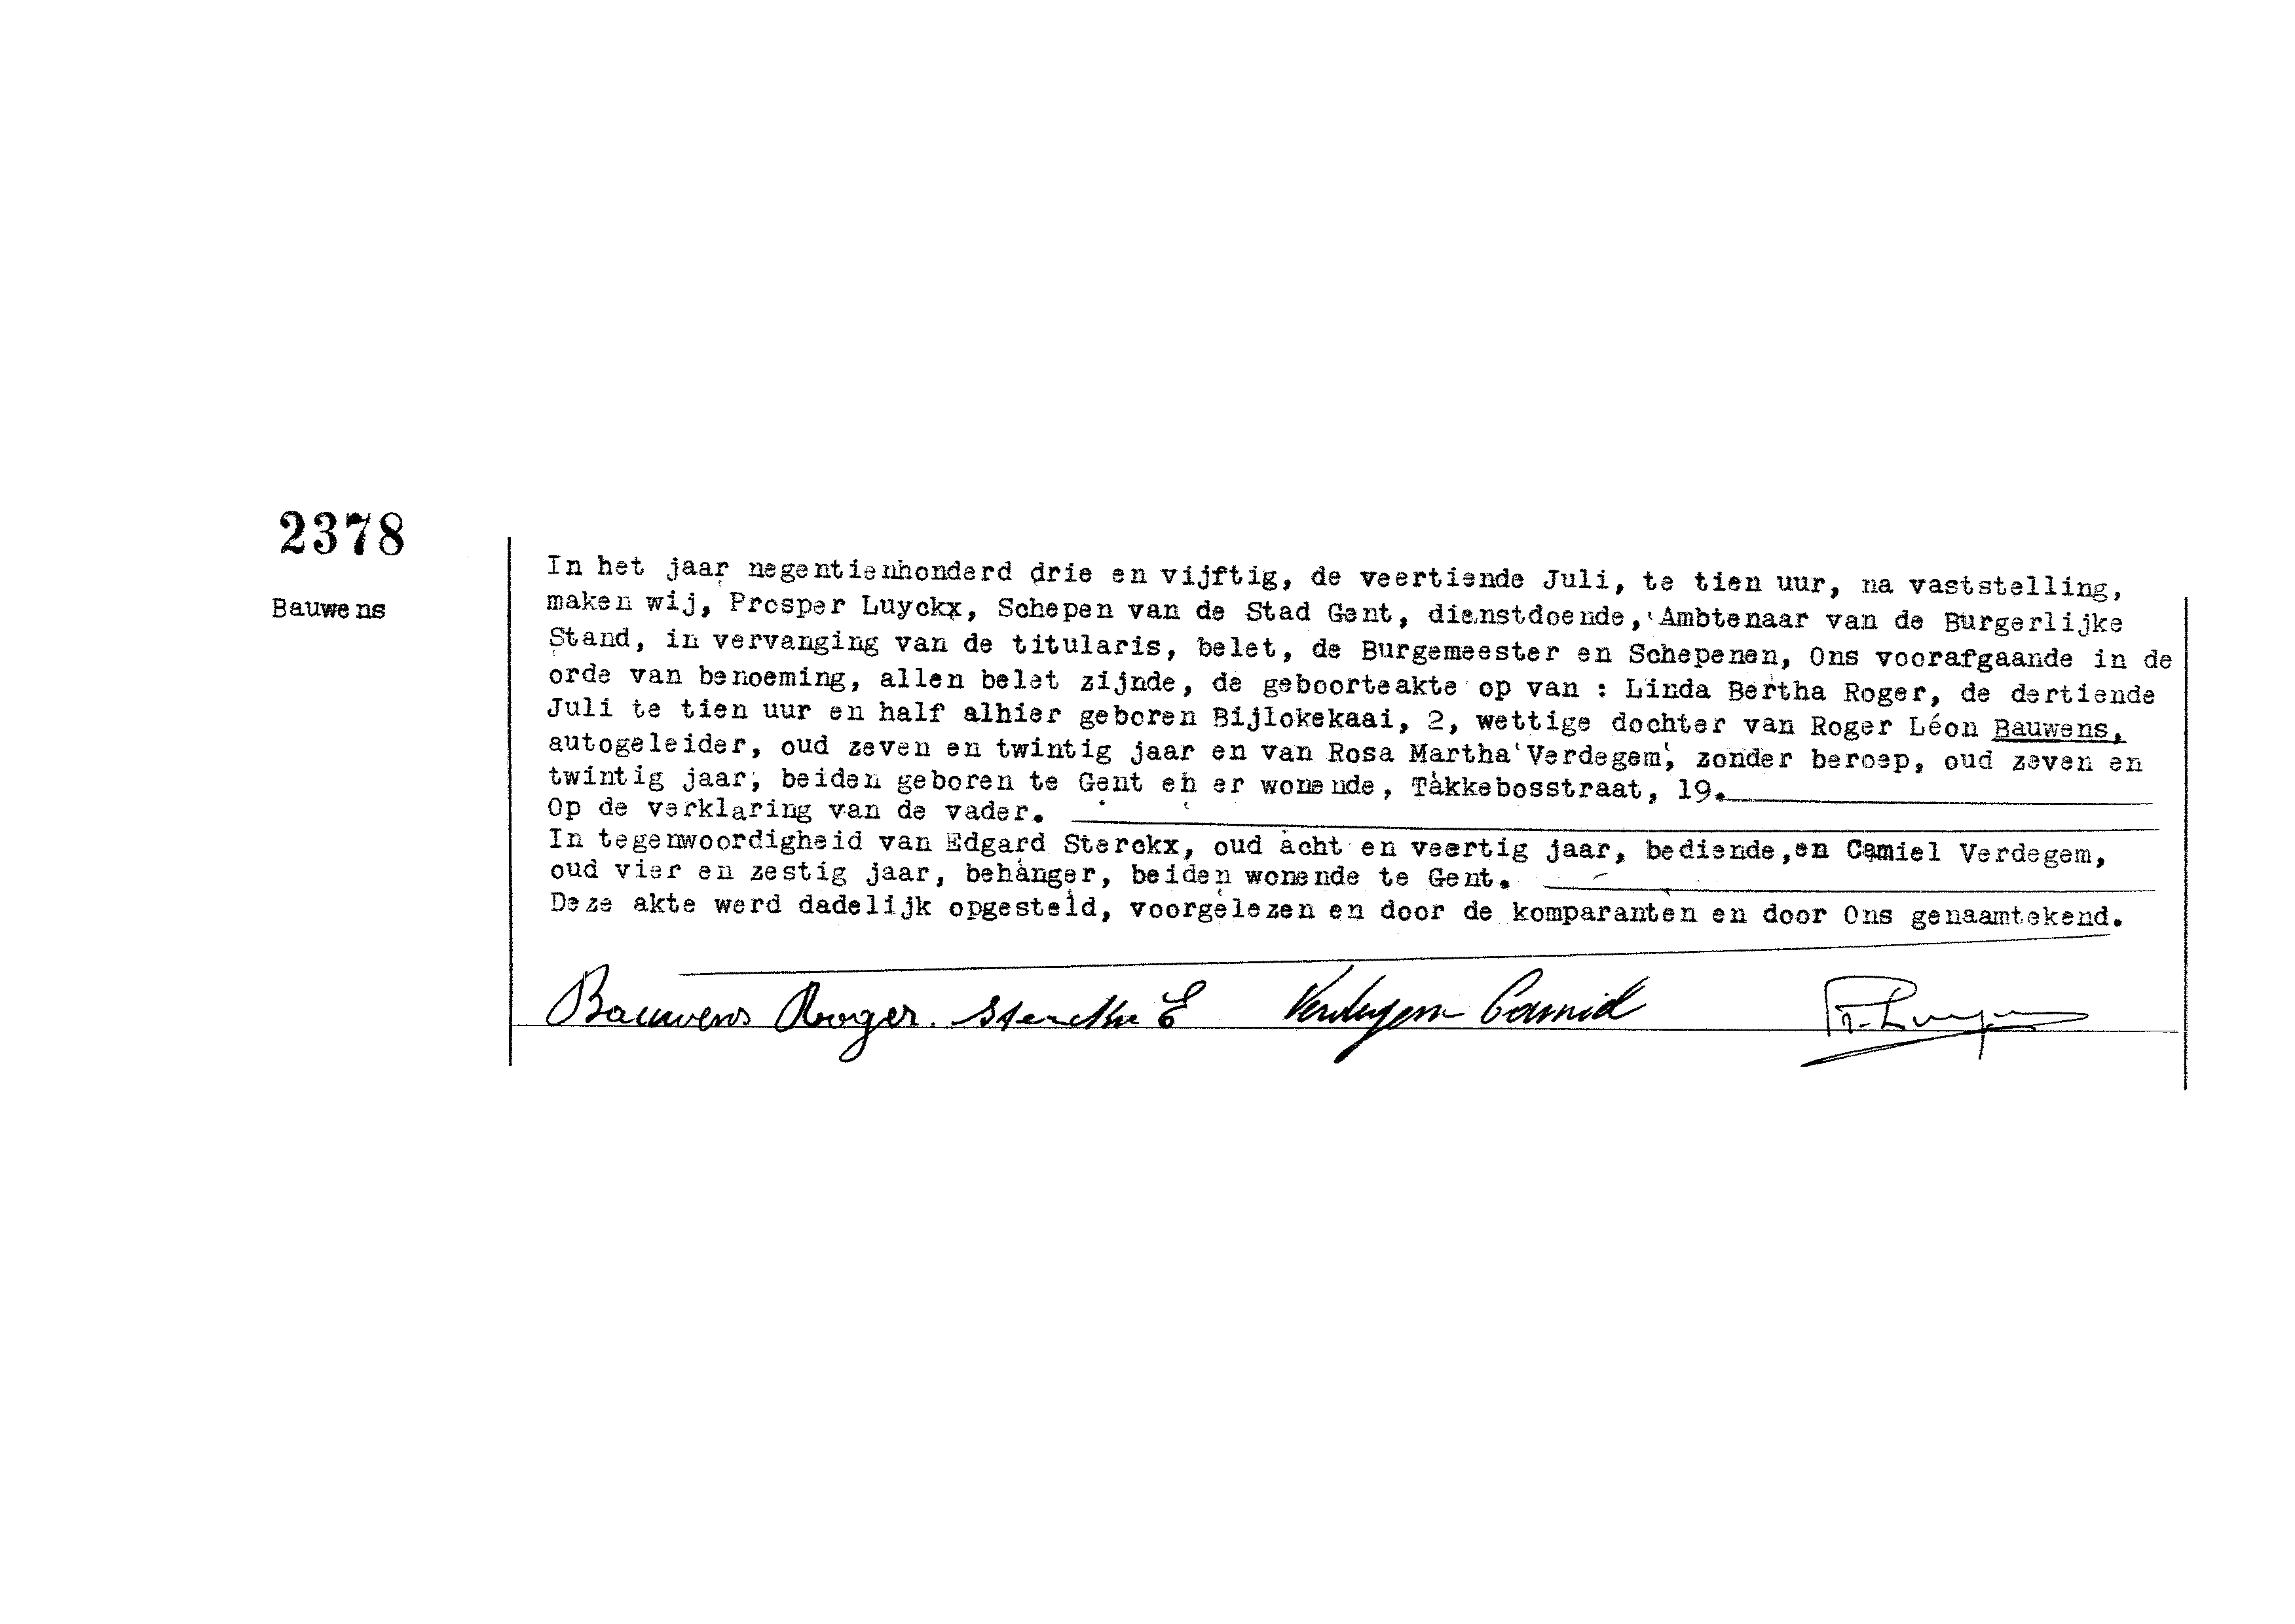 2378
Bauwens
In het jaar negentienhonderd drie en vijftig, de veertiende Juli, te tien uur, na vaststelling,
maken wij, Prosper Luyckx, Schepen van de Stad Gent, dienstdoende, Ambtenaar van de Burgerlijke
Stand, in vervanging van de titularis, belet, de Burgemeester en Schepenen, Ons voorafgaande in de
orde van benoeming, allen belet zijnde, de geboorteakte op van : Linda Bertha Roger, de dertiende
Juli te tien uur en half alhier geboren Bijlokekaai, 2, wettige dochter van Roger Léon Bauwens,
autogeleider, oud zeven en twintig jaar en van Rosa Martha Verdegem, zonder beroep, oud zeven en
twintig jaar, beiden geboren te Gent en er wonende, Takkebosstraat, 19.
Op de verklaring van de vader.
In tegenwoordigheid van Edgard Sterckx, oud acht en veertig jaar, bediende,en Camiel Verdegem,
oud vier en zestig jaar, behanger, beiden wonende te Gent.
Deze akte werd dadelijk opgesteld, voorgelezen en door de komparanten en door Ons genaamtekend.
Bauwens Roger. Sterckx E Verdegem Camiel